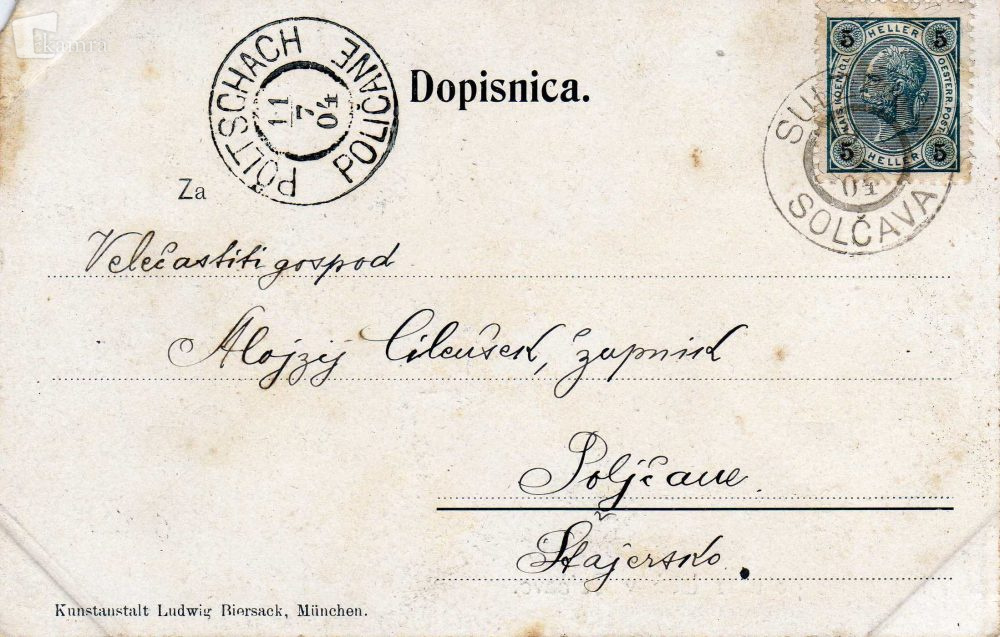 kamra
PÖLTSCHACH POLIČANE
11
7
04
Dopisnica.
5 HELLER 5
KAIS. KOENIGL. OESTERR. POST
5 HELLER 5
SOLČAVA
04
Za
Velečastiti gospod
Alojzij Cilenšek, župnik
Poljčane.
Štajersko.
Kunstanstalt Ludwig Biersack, München.